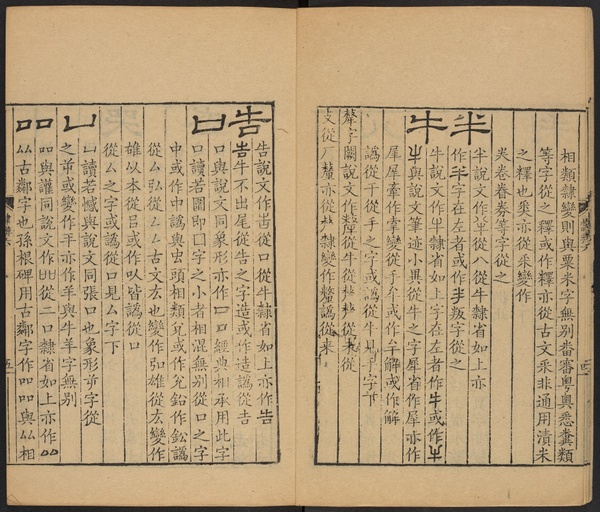 相類隸變則與粟米字無別番審粤奥悉糞類
等字從之釋或作釋亦從古文釆非通用漬米
之釋也奚亦從釆變作
類眷券等字從之
半
半說文作半從八從牛隸省如上亦
作半字在左者或作𠦒叛字從之
牛
牛說文作牛隸省如上字在左者作牛或作
牛與說文筆迹小異從牛之字犀省作犀亦作
犀犀牽作牽變從手牟或作牟解或作解
譌從干從手之字或譌從牛見手字下
犛
犛字闕說文作犛從牛從𠩺從來從
攴從厂𠩺亦從𠩺隸變作𨤲譌從來
告
告說文作告從口從牛隸省如上亦作告
告牛不出尾從告之字造或作造譌從吉
口
口與說文同象形亦作口口經典相承用此字
口讀若圍即囗字之小者相混無別從口之字
中或作中譌與虫頭相類兌或作允鈆作鈆譌
從厶弘從厶厶古文厷也變作引雄從厷變作
雄以本從吕或作㕥皆譌從口
從厶之字或譌從口見厶字下
凵
凵讀若憾與說文同張口也象形屰字從
之前或變作平亦作羊與牛羊字無別
吅
吅與讙同說文作吅從二口隸省如上亦作吅
厸古鄰字也孫根碑用古鄰字作吅吅與厸相